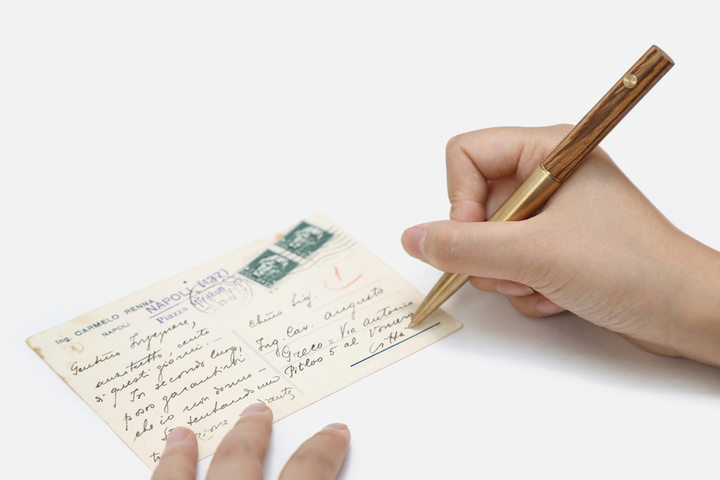 Ing. CARMELO RENNA
NAPOLI
NAPOLI (127)
Piazza
Gentmo Ingegnere,
anzitutto, cento
di questi giorni. —
In secondo luogo,
posso garantirti
che io non dormo —
Sto tentando una
Chmo Sig.
Ing. Cav. Augusto
Greco = Via Antonio
Pitloo 5 al Vomero
Città